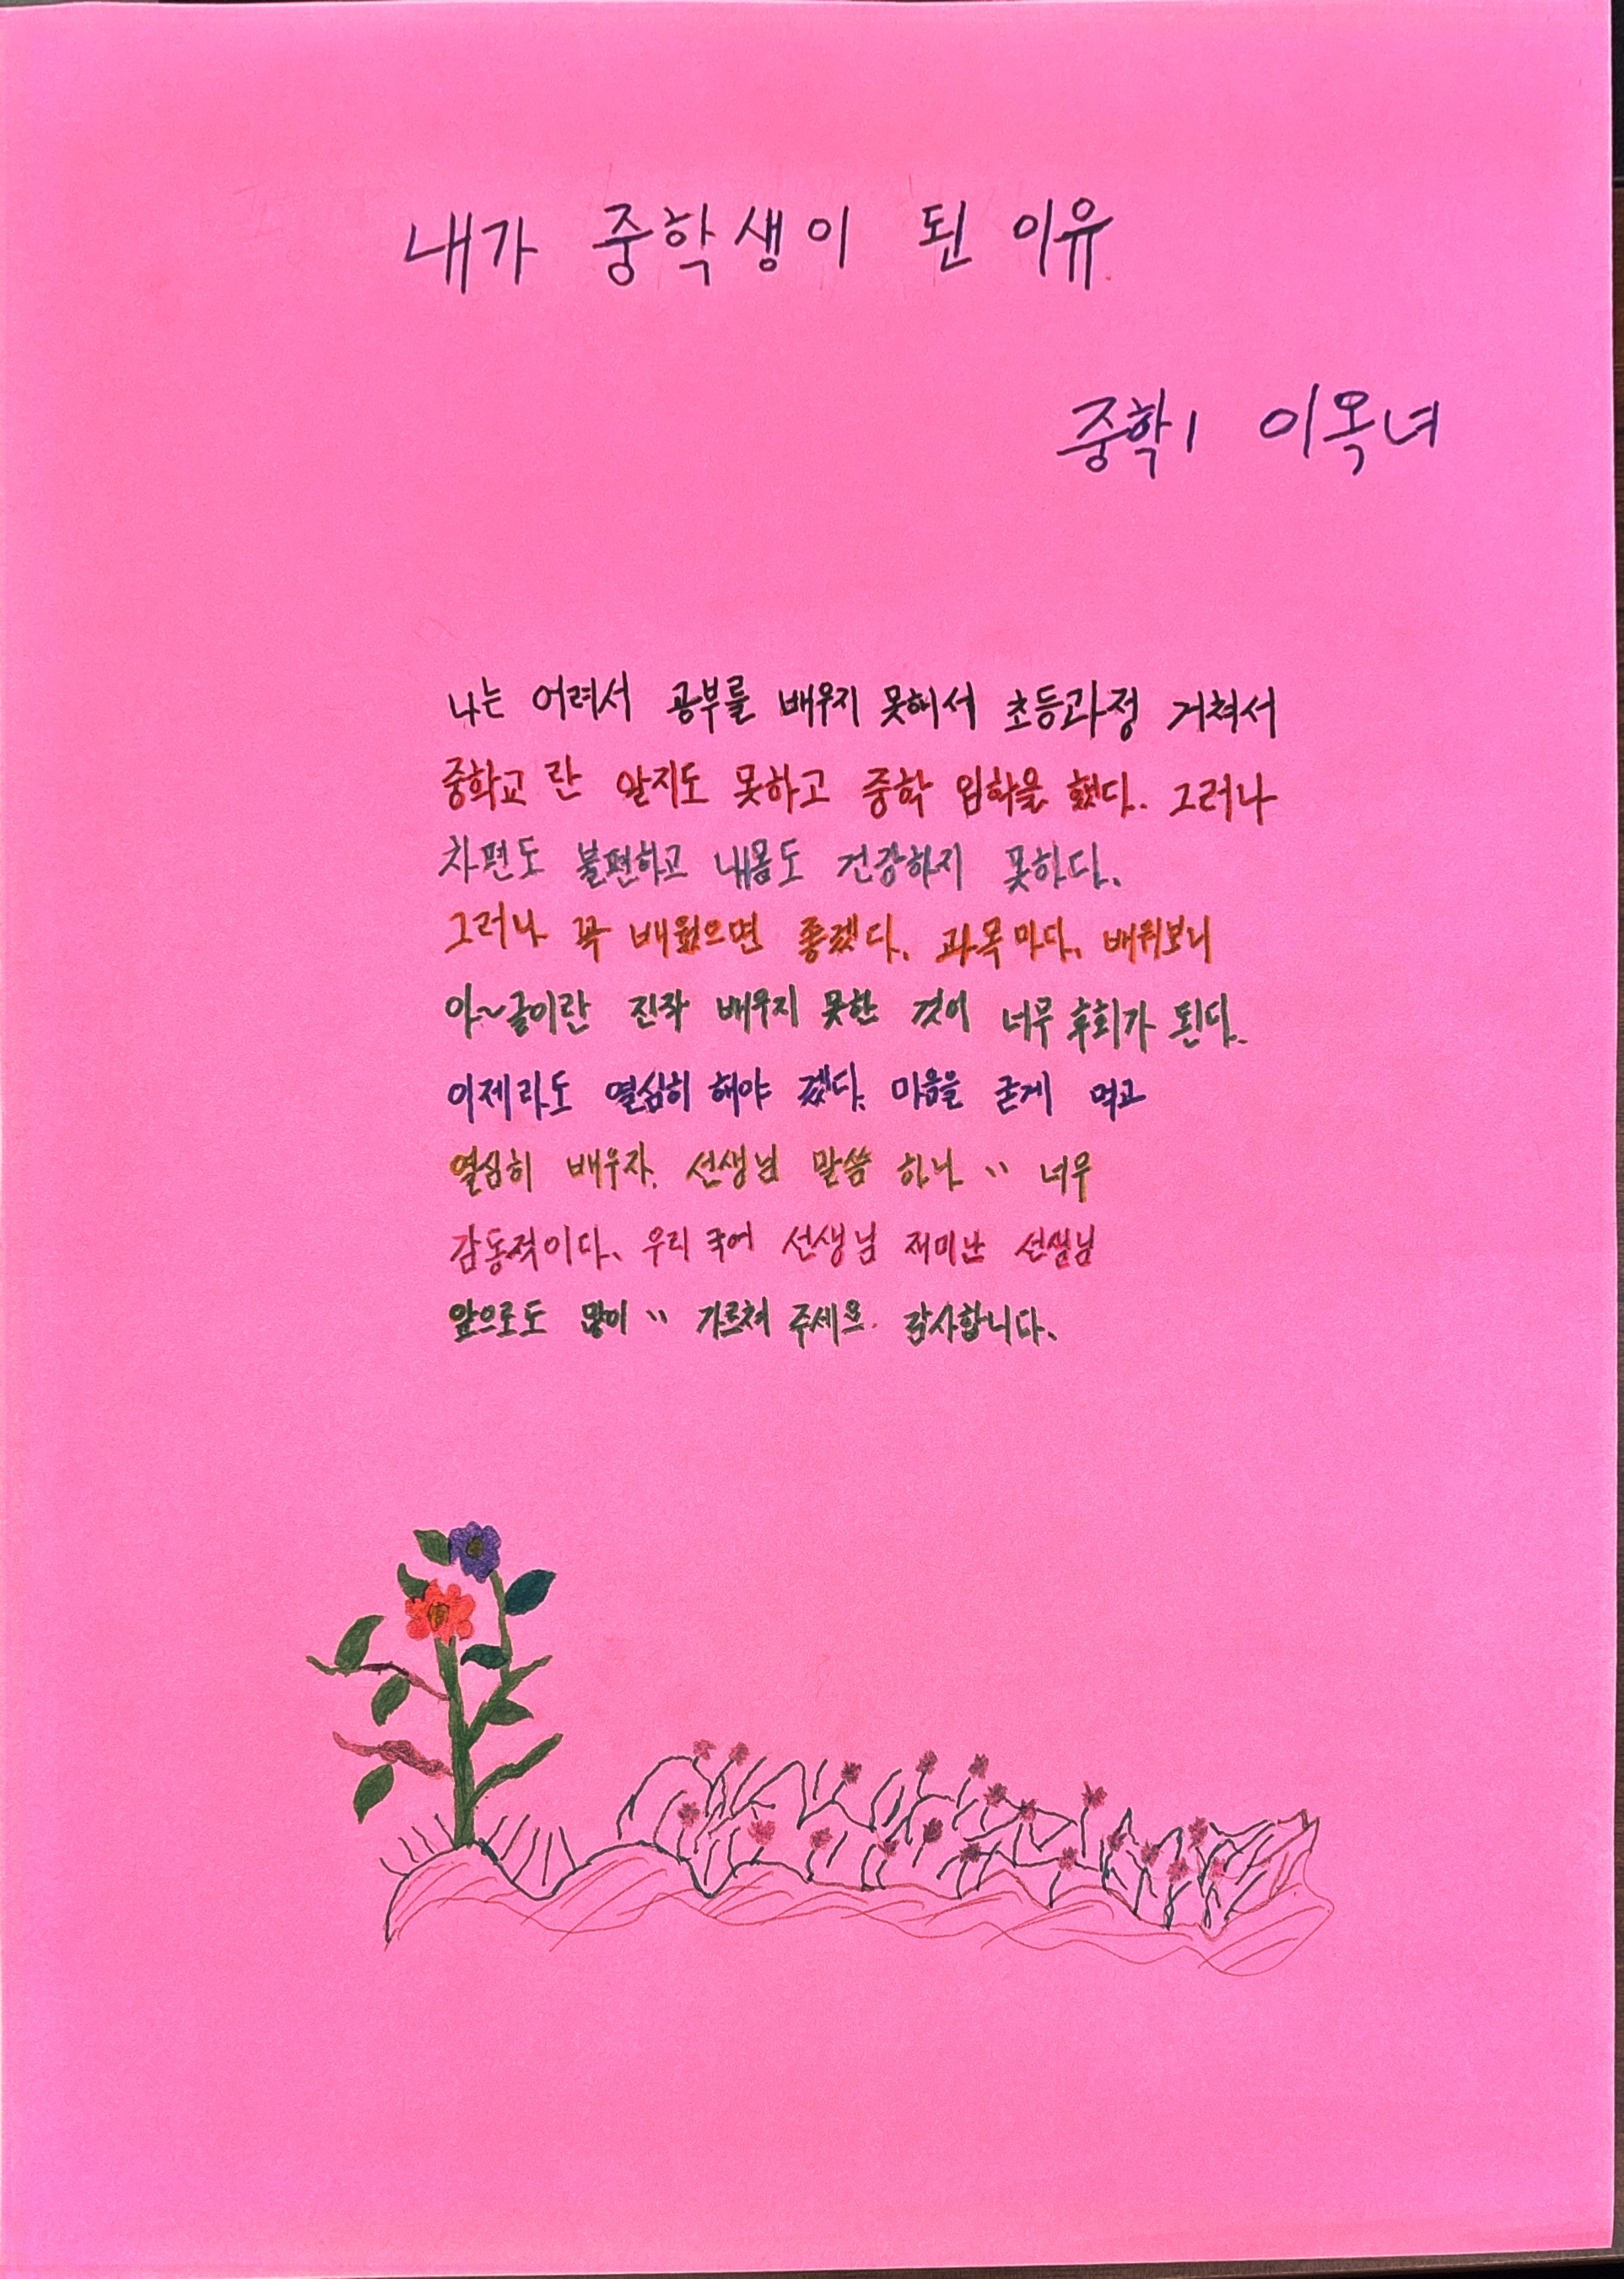 내가 중학생이 된 이유
중학1 이옥녀
나는 어려서 공부를 배우지 못해서 초등과정 거쳐서
중학교란 알지도 못하고 중학 입학을 했다. 그러나
차편도 불편하고 내몸도 건강하지 못하다.
그러나 꼭 배웠으면 좋겠다. 과목마다. 배워보니
아~글이란 진작 배우지 못한 것이 너무 후회가 된다.
이제라도 열심히 해야 겠다. 마음을 굳게 먹고
열심히 배우자. 선생님 말씀 하나 〃 너무
감동적이다. 우리 국어 선생님 재미난 선생님
앞으로도 많이 〃 가르쳐 주세요. 감사합니다.